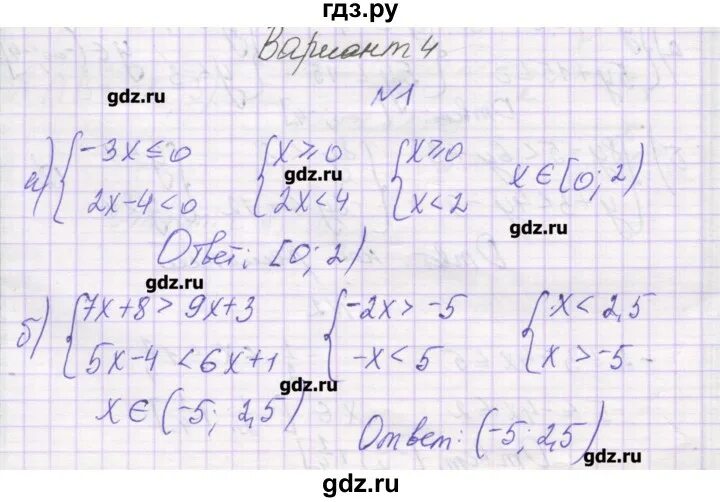 гдз.ру
Вариант 4
gdz.ru
N1
а) { -3x ≤ 0 { x ≥ 0 { x ≥ 0
2x-4<0 { 2x<4 { x<2 x ∈ [0; 2)
gdz.ru
gdz.ru
Ответ: [0; 2)
gdz.ru
б) { 7x+8 > 9x+3 { -2x > -5 { x < 2,5
5x-4 < 6x+1 -x < 5 x > -5
gdz.ru
x ∈ (-5; 2,5)
Ответ: (-5; 2,5)
gdz.ru
gdz.ru